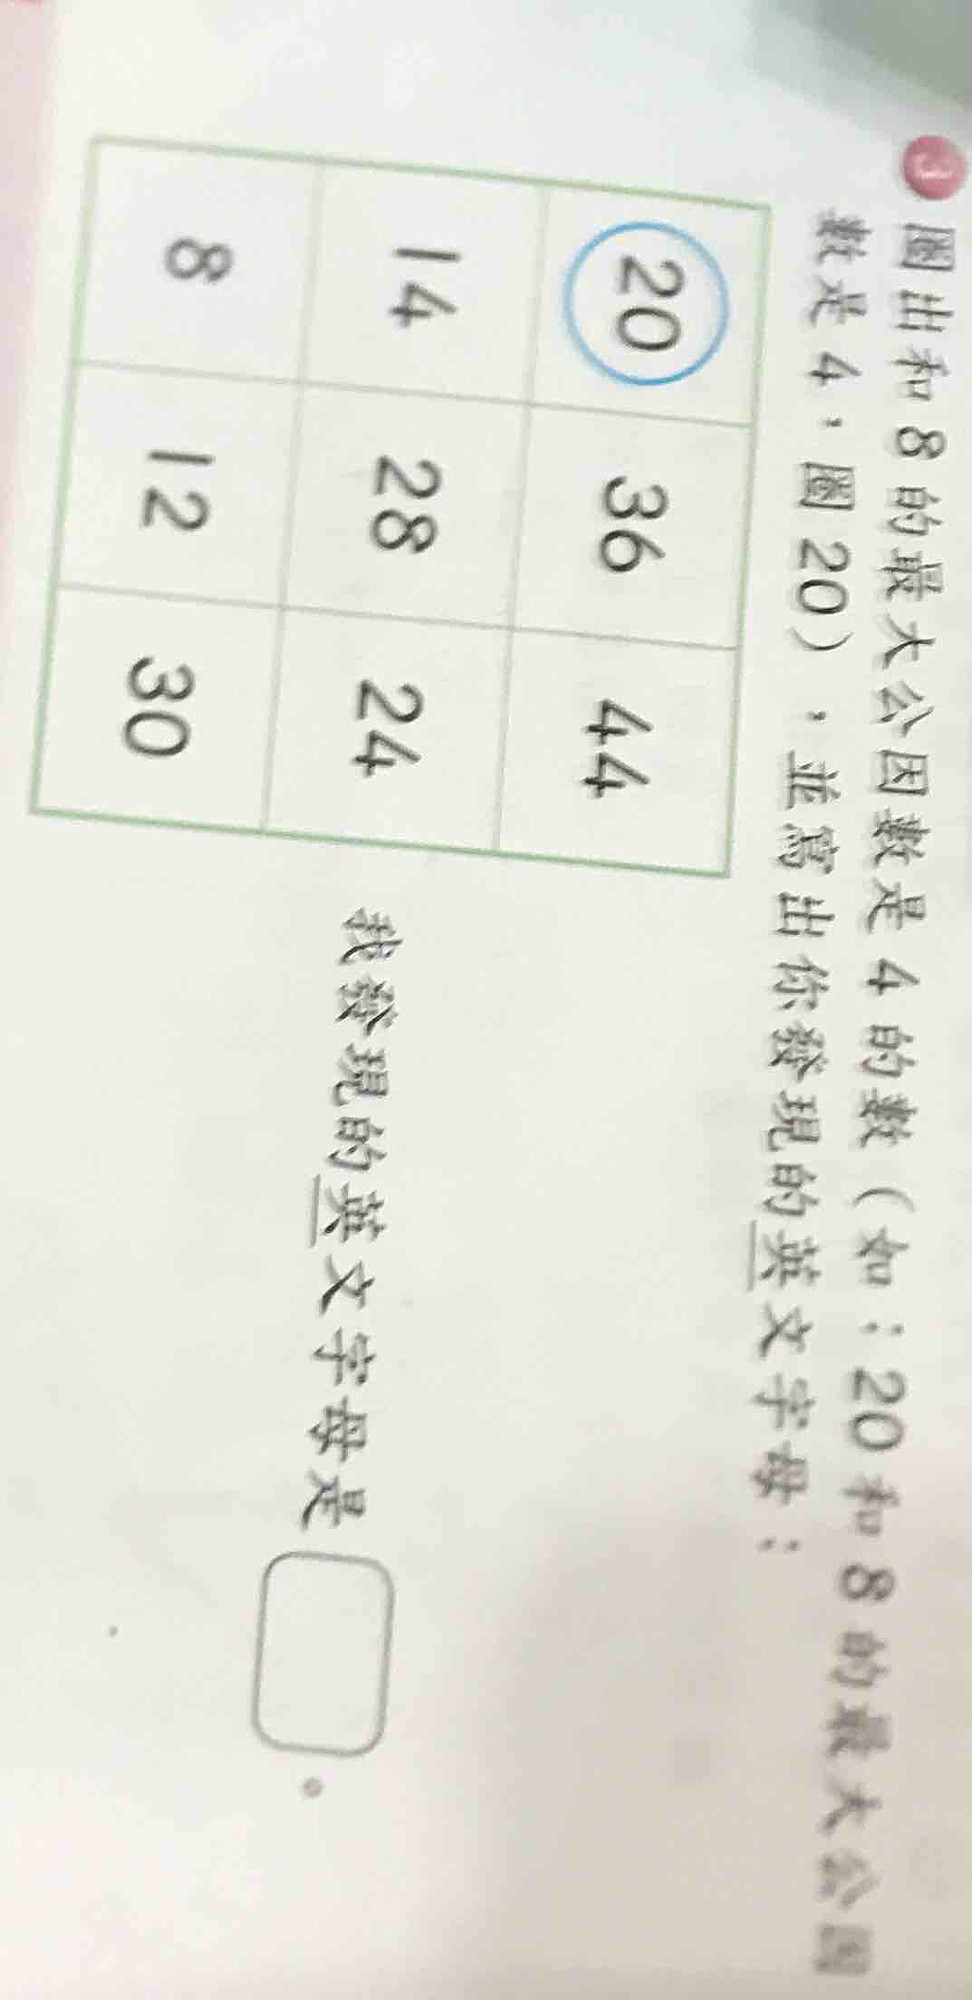 3 圈出和 8 的最大公因數是 4 的數（如：20 和 8 的最大公因
數是 4，圈 20），並寫出你發現的英文字母：
20 36 44
14 28 24
8 12 30
我發現的英文字母是 。